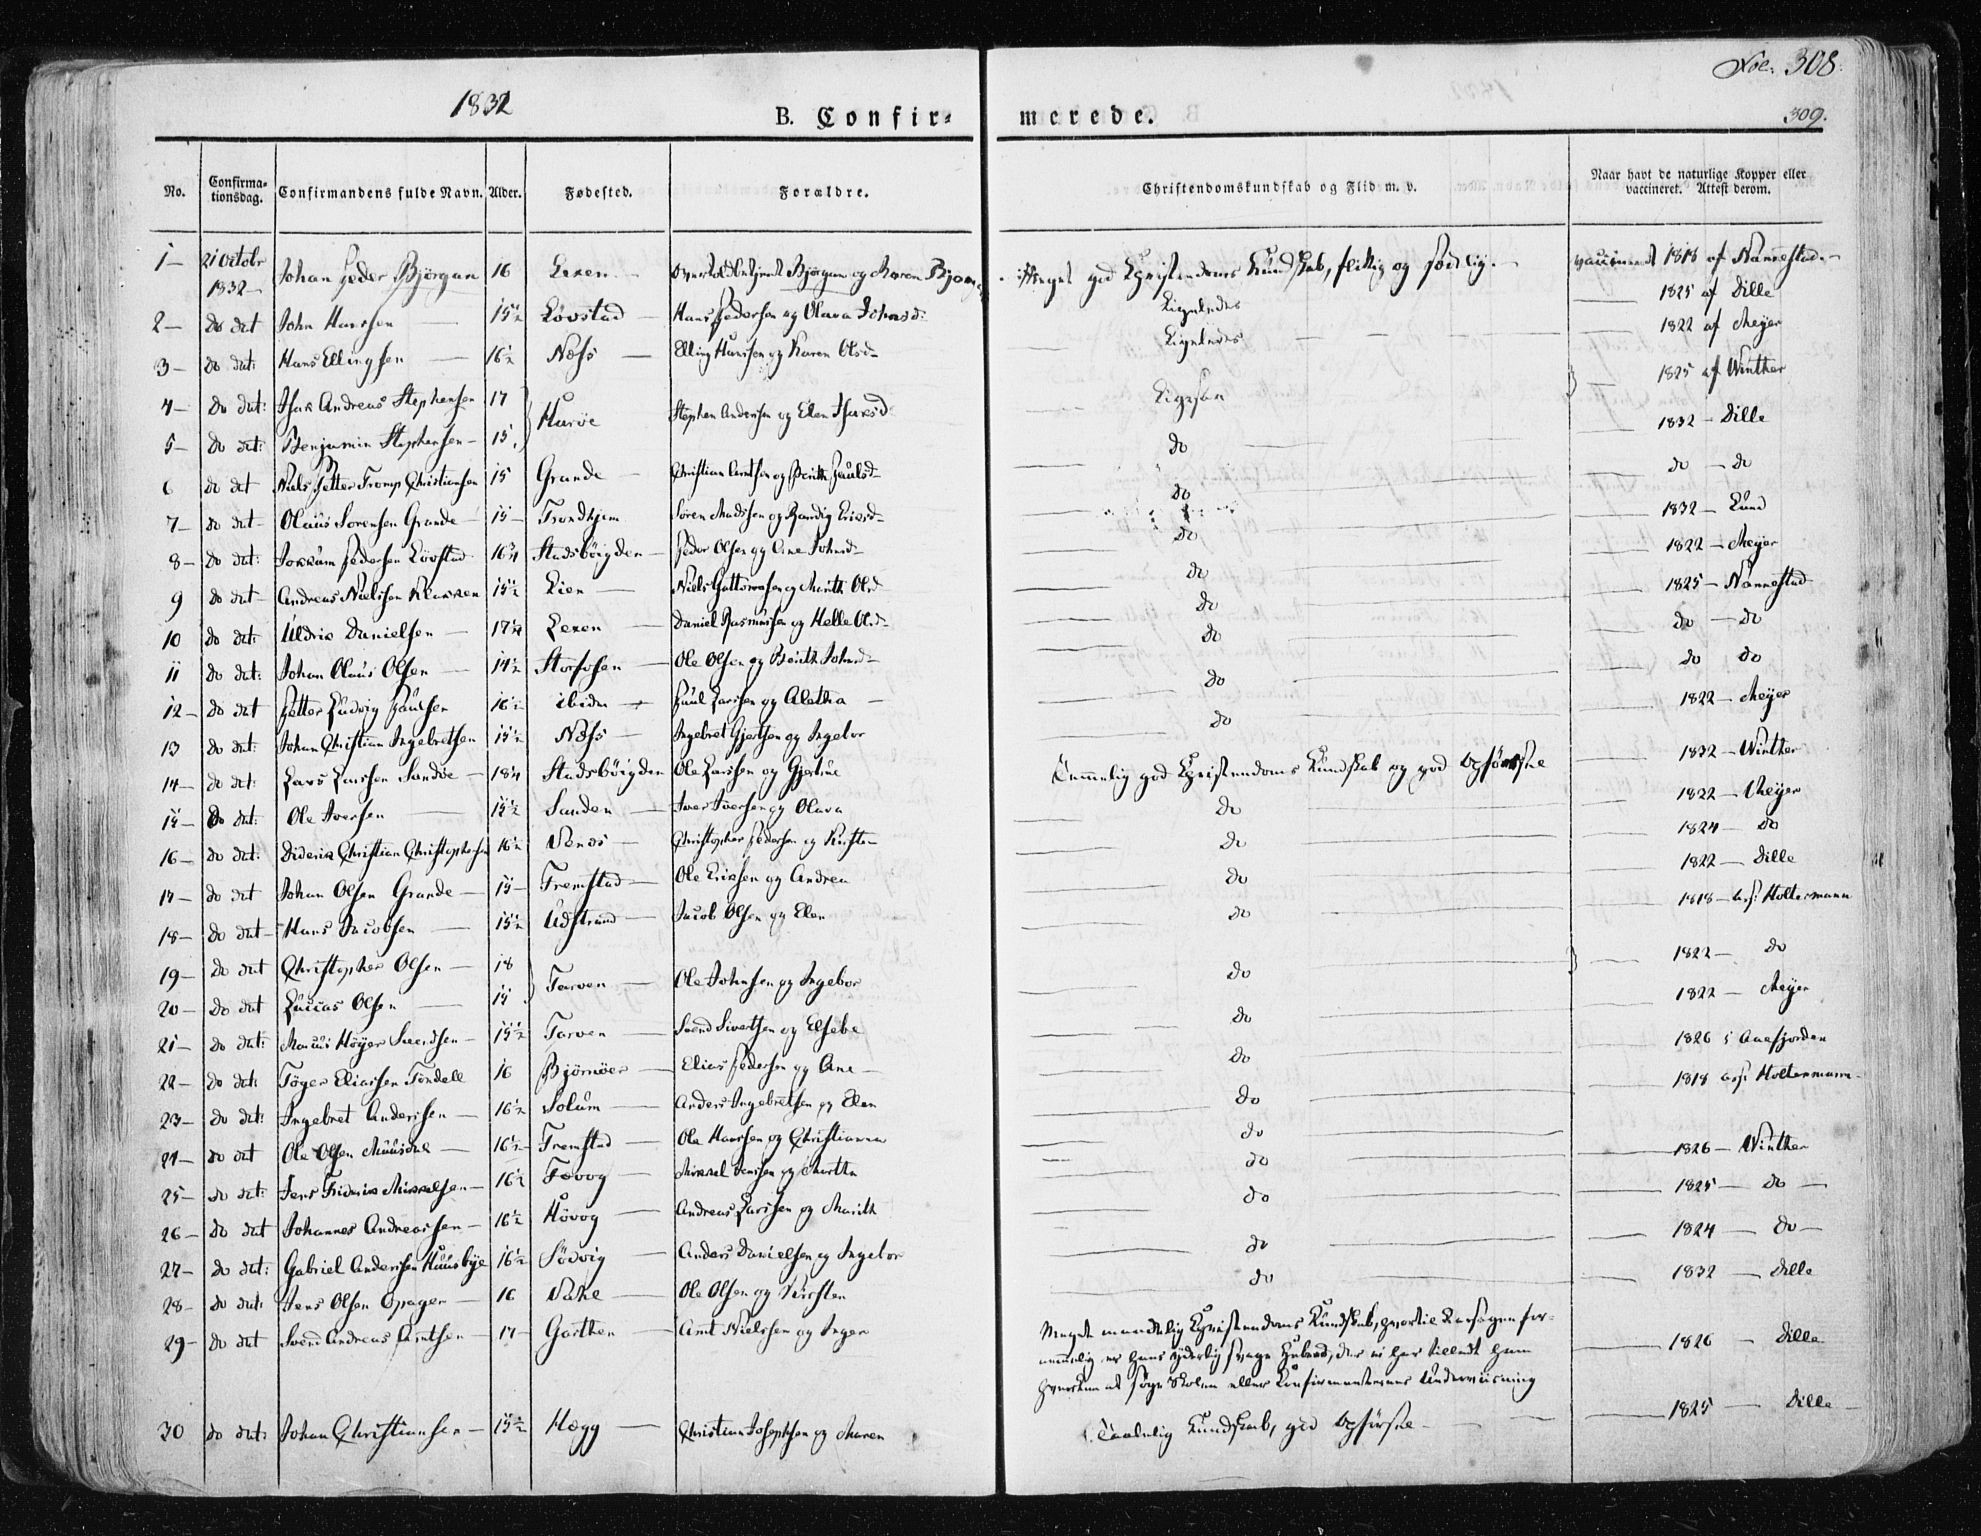 308.
1832
B. Confir-
merede.
309.
No.
Confirma-
tionsdag.
Confirmandens fulde Navn.
Alder.
Fødested.
Forældre.
Christendomskundskab og Flid m. v.
Naar havt de naturlige Kopper eller
vaccineret. Attest derom.
1 — 21 Octobr 1832 — Johan Peder Björgan 16 Björgan og Maren meget god Christendoms Kundskab, flittig og sædelig. — vaccineret 1818 af Nannestad —
2 — do dat John Hanssen — 15½ Lövstad — Hans Pedersen og Olava Johnsd: Ligeledes — 1825 af Dille
3 — do dat: Hans Ellingsen — 16½ Næss — Elling Hanssen og Karen Olsd — Ligeledes — 1822 af Meyer
4 — do dat: Isak Andreas Stephensen 17 Haröe Stephen Andersen og Elen Isaksd Ligesaa — 1825 af Winther
5 — do dat: Benjamin Stephensen — 15 do — 1832 — Dille
6 do dat Niels Petter Tromp Christiansen 15 Grande — Christian Arntsen og Berith Paulsd — do — do — do
7 — do dat — Olaus Sorensen Grande 15 — Trondhjem Sören Madssen og Randig Ericsd — do — 1832 — Lund
8 — do dat: Jokkum Pedersen Lövstad 16¾ Stadsböigden — Peder Olsen og Ane Johnsd — do — 1822 — Meyer
9 do dat — Andreas Nielssen 15½ Lien — Niels Guttormsen og Marith Olsd do — 1825 — Nannestad
10 do dat: Uldrik Danielsen — 17¼ Lexen — Daniel Rasmussen og Helle Olsd — do — do — do
11 do dat: Johan Olaus Olsen — 14½ Storfosen — Ole Olsen og Berith Johnsd — do — do do
12 — do dat Petter Ludvig Paulsen 16½ ibidm — Paul Larssen og Aletha — do — 1822 — Meyer
13 do dat: Johan Christian Ingebretsen 15½ Næss — Ingebret Gjertsen og Ingebor do
14 — do dat: Lars Larssen Sandöe — 18¼ Stadsböigden Ole Larssen og Gjertrue Temmelig god Christendoms Kundskab og god Opförsel 1832 — Winther
15 — do dat: Ole Iversen — 15½ Sanden — Iver Iversen og Olava do — 1822 — Meyer
16 — do dat: Diderik Christian Christophersen 16½ Christopher Pedersen og do — 1824 — do
17 — do dat Johan Olsen Grande — 15 — Fremstad — Ole Ericksen og Andrea do — 1822 — Dille
18 — do dat — Hans Jacobsen — 15½ Udstrand — Jacob Olsen og Elen do — 1818 — Holtermann
19 — do dat Christopher Olsen — 18 Tarven — Ole Johnsen og Ingebor do — 1822 — do
20 — do dat Lucas Olsen — 15 do — 1822 — Meyer
21 — do dat: Marcus Höyer Svendsen — 15½ Tarven — Svend Sivertsen og Elsebe do — 1826 i Aaefjorden
22 — do dat: Töger Eliassen Tondell 16 Björnöer — Elias Pedersen og Ane — do — 1818 Holtermann —
23 — do dat: Ingebret Anderssen — 16½ Solum — Anders Ingebretsen og Elen do
24 — do dat Ole Olsen — 16½ Fremstad — Ole Hanssen og Christianna do — 1826 — Winther
25 — do dat: Jens Friderik Mikkelsen — 16½ Fevog — Mikkel Jenssen og Martha do — 1825 — do —
26 — do dat Johannes Andreassen — 16½ Hövog — Andreas Larssen og Marith do — 1824 — do —
27 — do dat: Gabriel Anderssen Huusbye 16½ Södvig — Anders Danielsen og Ingebor do — 1832 — Dille
28 — do dat: Jens Olsen Opager — 16 — Ole Olsen og Kirsten do
29 — do dat Svend Andreas Arntsen — 17 — Garthen — Arnt Nielssen og Inger Meget maadelig Christendoms Kundskab, — 1826 — Dille
30 do dat: Johan Christiansen — 15½ Hegg — Christian Josephsen og Maren Taalelig Kundskab, god Opförsel — 1825 — Dille —